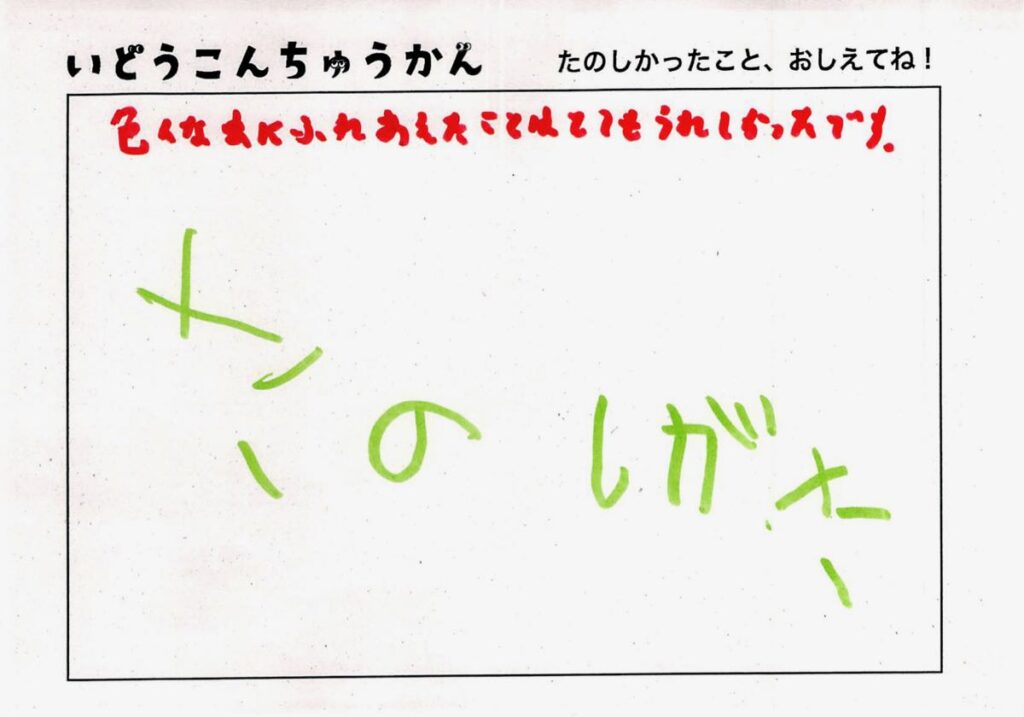 いどうこんちゅうかん
たのしかったこと、おしえてね！
色々な虫にふれあえたことはとてもうれしかったです。
たのしがた